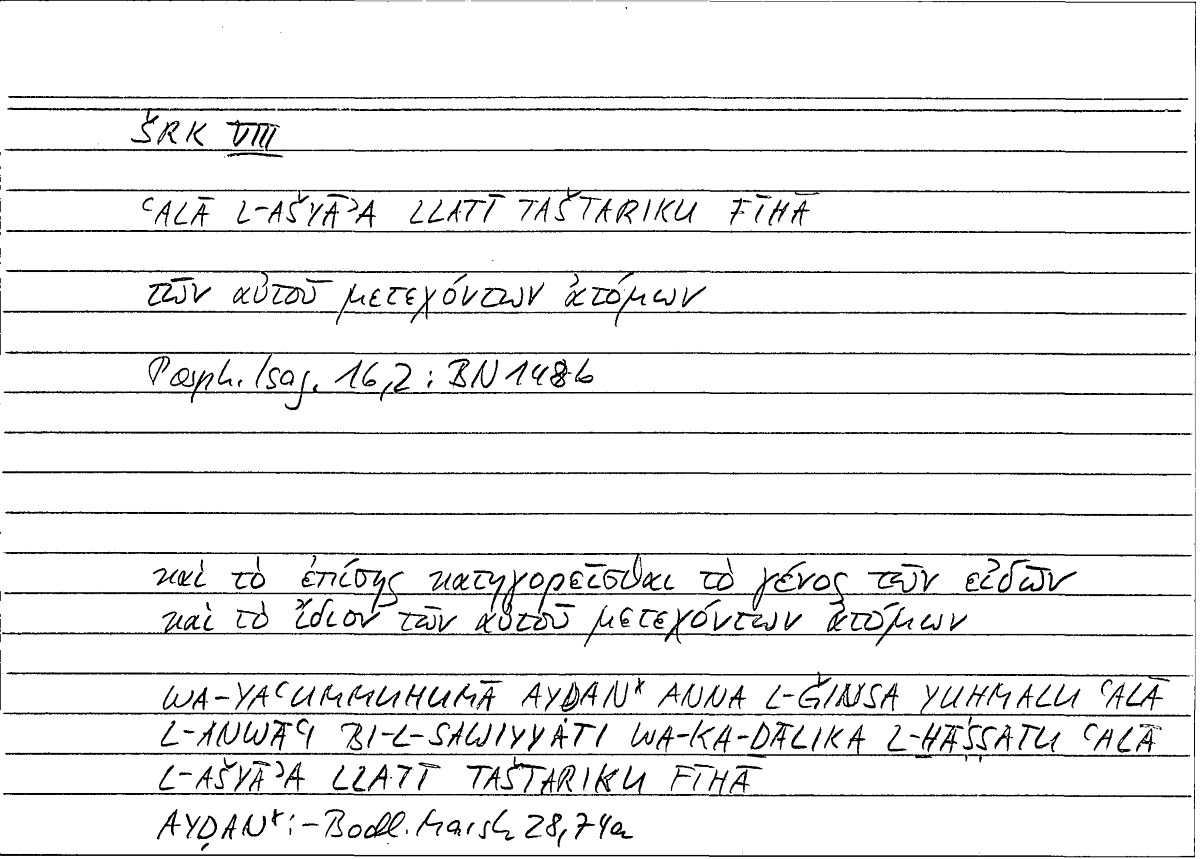 ŠRK VIII
ʿALĀ L-AŠYĀʾA LLATĪ TAŠTARIKU FĪHĀ
τῶν αὐτοῦ μετεχόντων ἀτόμων
Porph. Isag. 16,2 : BN 148b
καὶ τὸ ἐπίσης κατηγορεῖσθαι τὸ γένος τῶν εἰδῶν
καὶ τὸ ἴδιον τῶν αὐτοῦ μετεχόντων ἀτόμων
WA-YAʿUMMUHUMĀ AYḌAN* ANNA L-ǦINSA YUHMALU ʿALĀ
L-ANWĀʿI BI-L-SAWIYYATI WA-KA-ḎĀLIKA L-ḪĀṢṢATU ʿALĀ
L-AŠYĀʾA LLATĪ TAŠTARIKU FĪHĀ
AYḌAN* : – Bodl. Marsh 28,74a